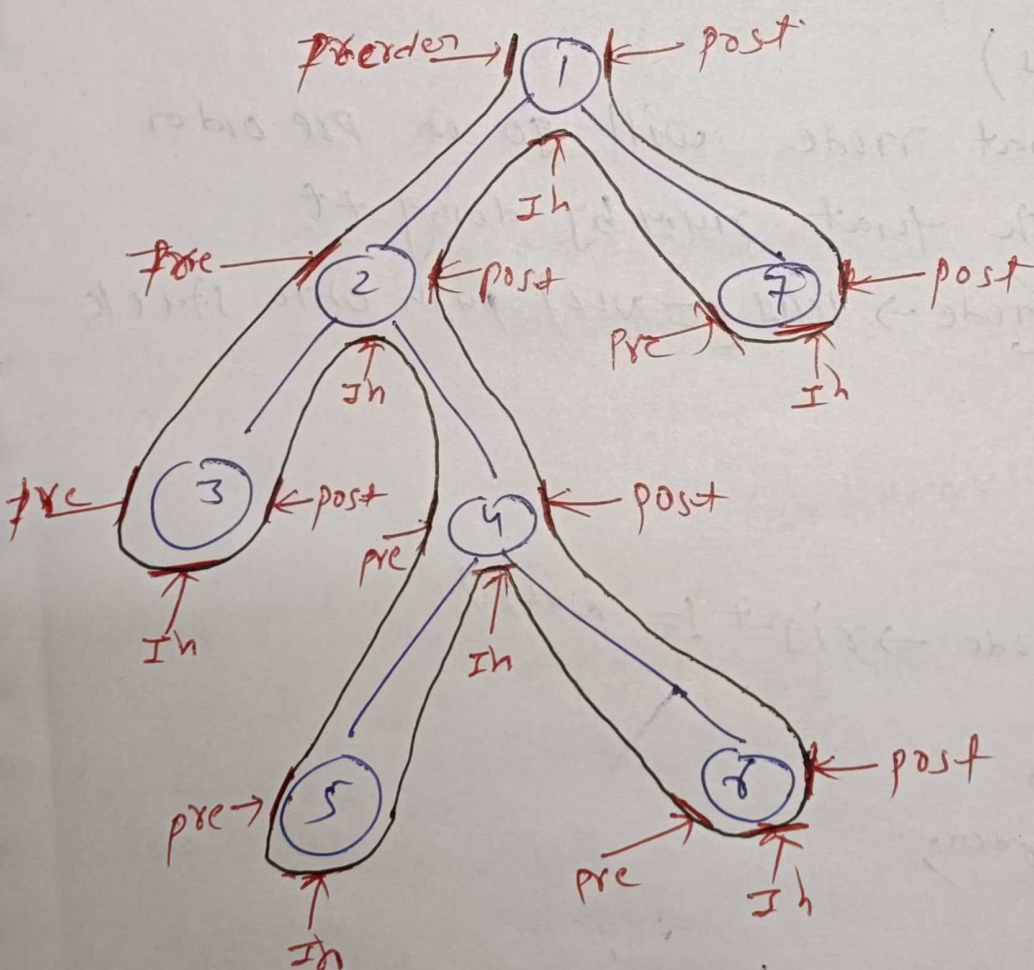 Preorder
1
post
In
Pre
2
post
7
post
Pre
In
In
pre
3
post
pre
4
post
In
In
pre
5
6
post
pre
In
In